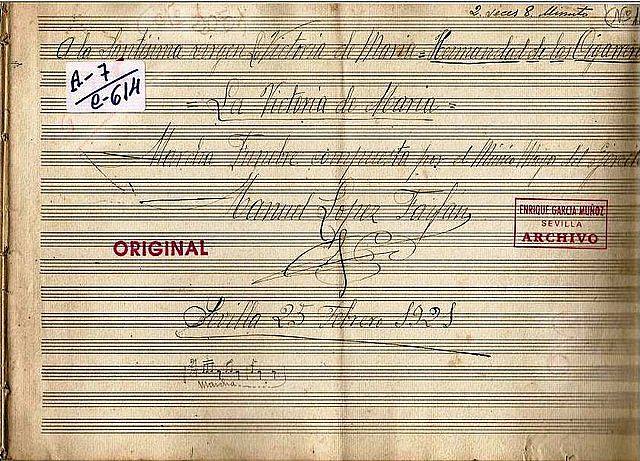 2. veces 8. Minutos
Nº 2
A la Santisima virgen Victoria de Maria = Hermandad de los Cigarreras
A-7
C-614
= La Victoria de Maria =
Marcha Funebre compuesta por el Músico Mayor del Ejercito
Manuel López Farfán
ENRIQUE GARCIA MUÑOZ
SEVILLA
ARCHIVO
ORIGINAL
Sevilla 25 Febrero 1921
Marcha